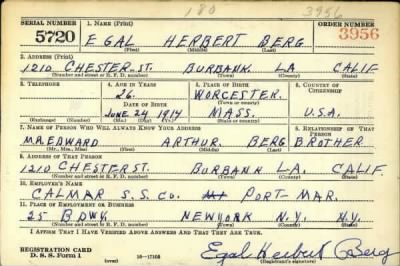 180 3956
SERIAL NUMBER 1. NAME (Print) ORDER NUMBER
5720 EGAL HERBERT BERG 3956
(First) (Middle) (Last)
2. ADDRESS (Print)
1210 CHESTER ST. BURBANK LA CALIF
(Number and street or R. F. D. number) (Town) (County) (State)
3. TELEPHONE 4. AGE IN YEARS 5. PLACE OF BIRTH 6. COUNTRY OF CITIZENSHIP
26 WORCESTER
DATE OF BIRTH (Town or county)
JUNE 24 1914 MASS. U.S.A.
(Exchange) (Number) (Mo.) (Day) (Yr.) (State or country)
7. NAME OF PERSON WHO WILL ALWAYS KNOW YOUR ADDRESS 8. RELATIONSHIP OF THAT PERSON
MR. EDWARD ARTHUR BERG BROTHER
(Mr., Mrs., Miss) (First) (Middle) (Last)
9. ADDRESS OF THAT PERSON
1210 CHESTER ST. BURBANK LA CALIF.
(Number and street or R. F. D. number) (Town) (County) (State)
10. EMPLOYER'S NAME
CALMAR S.S. CO. PORT MAR.
11. PLACE OF EMPLOYMENT OR BUSINESS
25 BDWY. NEW YORK N.Y. N.Y.
(Number and street or R. F. D. number) (Town) (County) (State)
I AFFIRM THAT I HAVE VERIFIED ABOVE ANSWERS AND THAT THEY ARE TRUE.
REGISTRATION CARD
D. S. S. Form 1 (over) 16-17105 Egal Herbert Berg
(Registrant's signature)